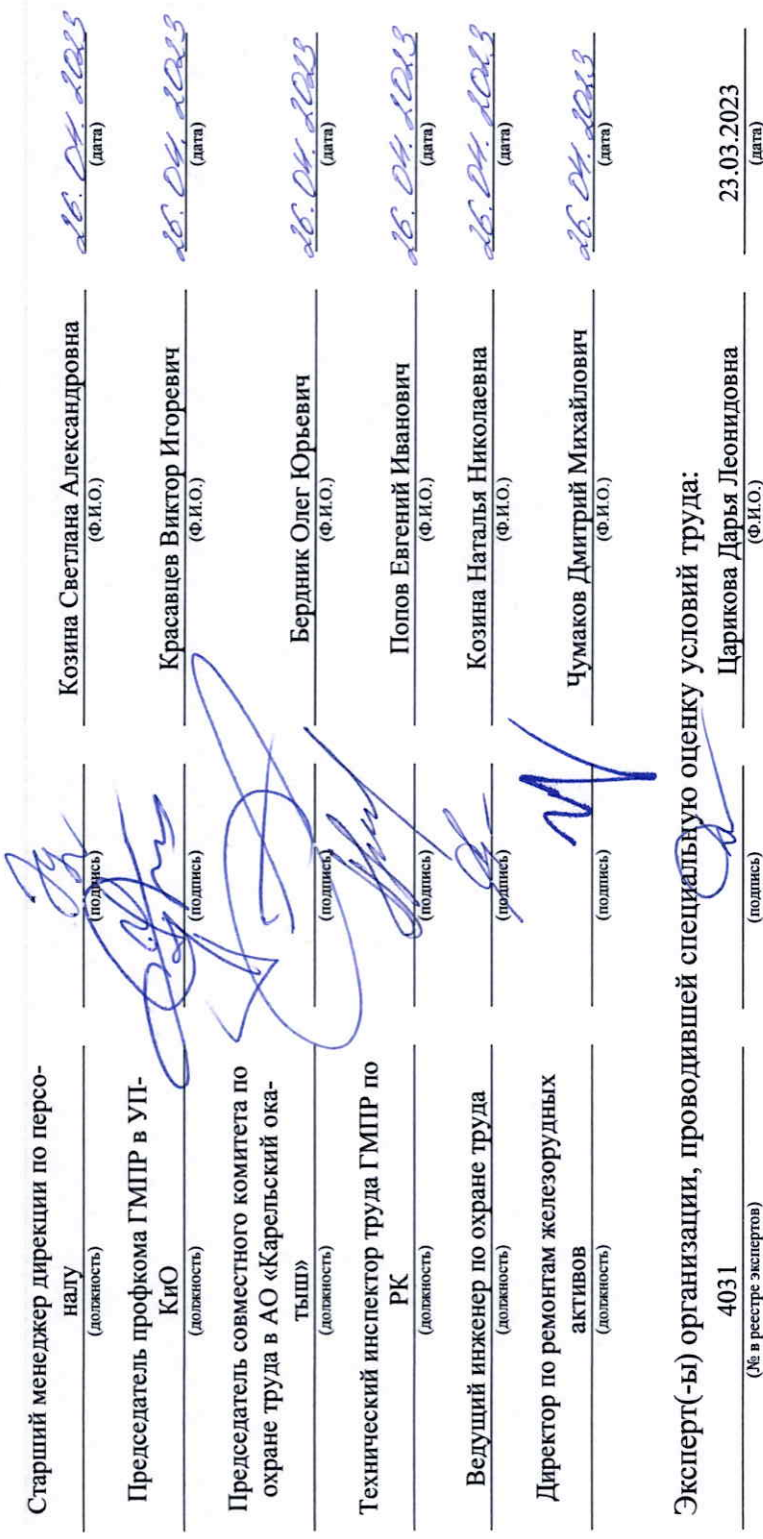 Старший менеджер дирекции по персо-
налу
(должность)
(подпись)
Козина Светлана Александровна
(Ф.И.О.)
26.04.2023
(дата)
Председатель профкома ГМПР в УП-
КиО
(должность)
(подпись)
Красавцев Виктор Игоревич
(Ф.И.О.)
26.04.2023
(дата)
Председатель совместного комитета по
охране труда в АО «Карельский ока-
тыш»
(должность)
(подпись)
Бердник Олег Юрьевич
(Ф.И.О.)
26.04.2023
(дата)
Технический инспектор труда ГМПР по
РК
(должность)
(подпись)
Попов Евгений Иванович
(Ф.И.О.)
26.04.2023
(дата)
Ведущий инженер по охране труда
(должность)
(подпись)
Козина Наталья Николаевна
(Ф.И.О.)
26.04.2023
(дата)
Директор по ремонтам железорудных
активов
(должность)
(подпись)
Чумаков Дмитрий Михайлович
(Ф.И.О.)
26.04.2023
(дата)
Эксперт(-ы) организации, проводившей специальную оценку условий труда:
4031
(№ в реестре экспертов)
(подпись)
Царикова Дарья Леонидовна
(Ф.И.О.)
23.03.2023
(дата)